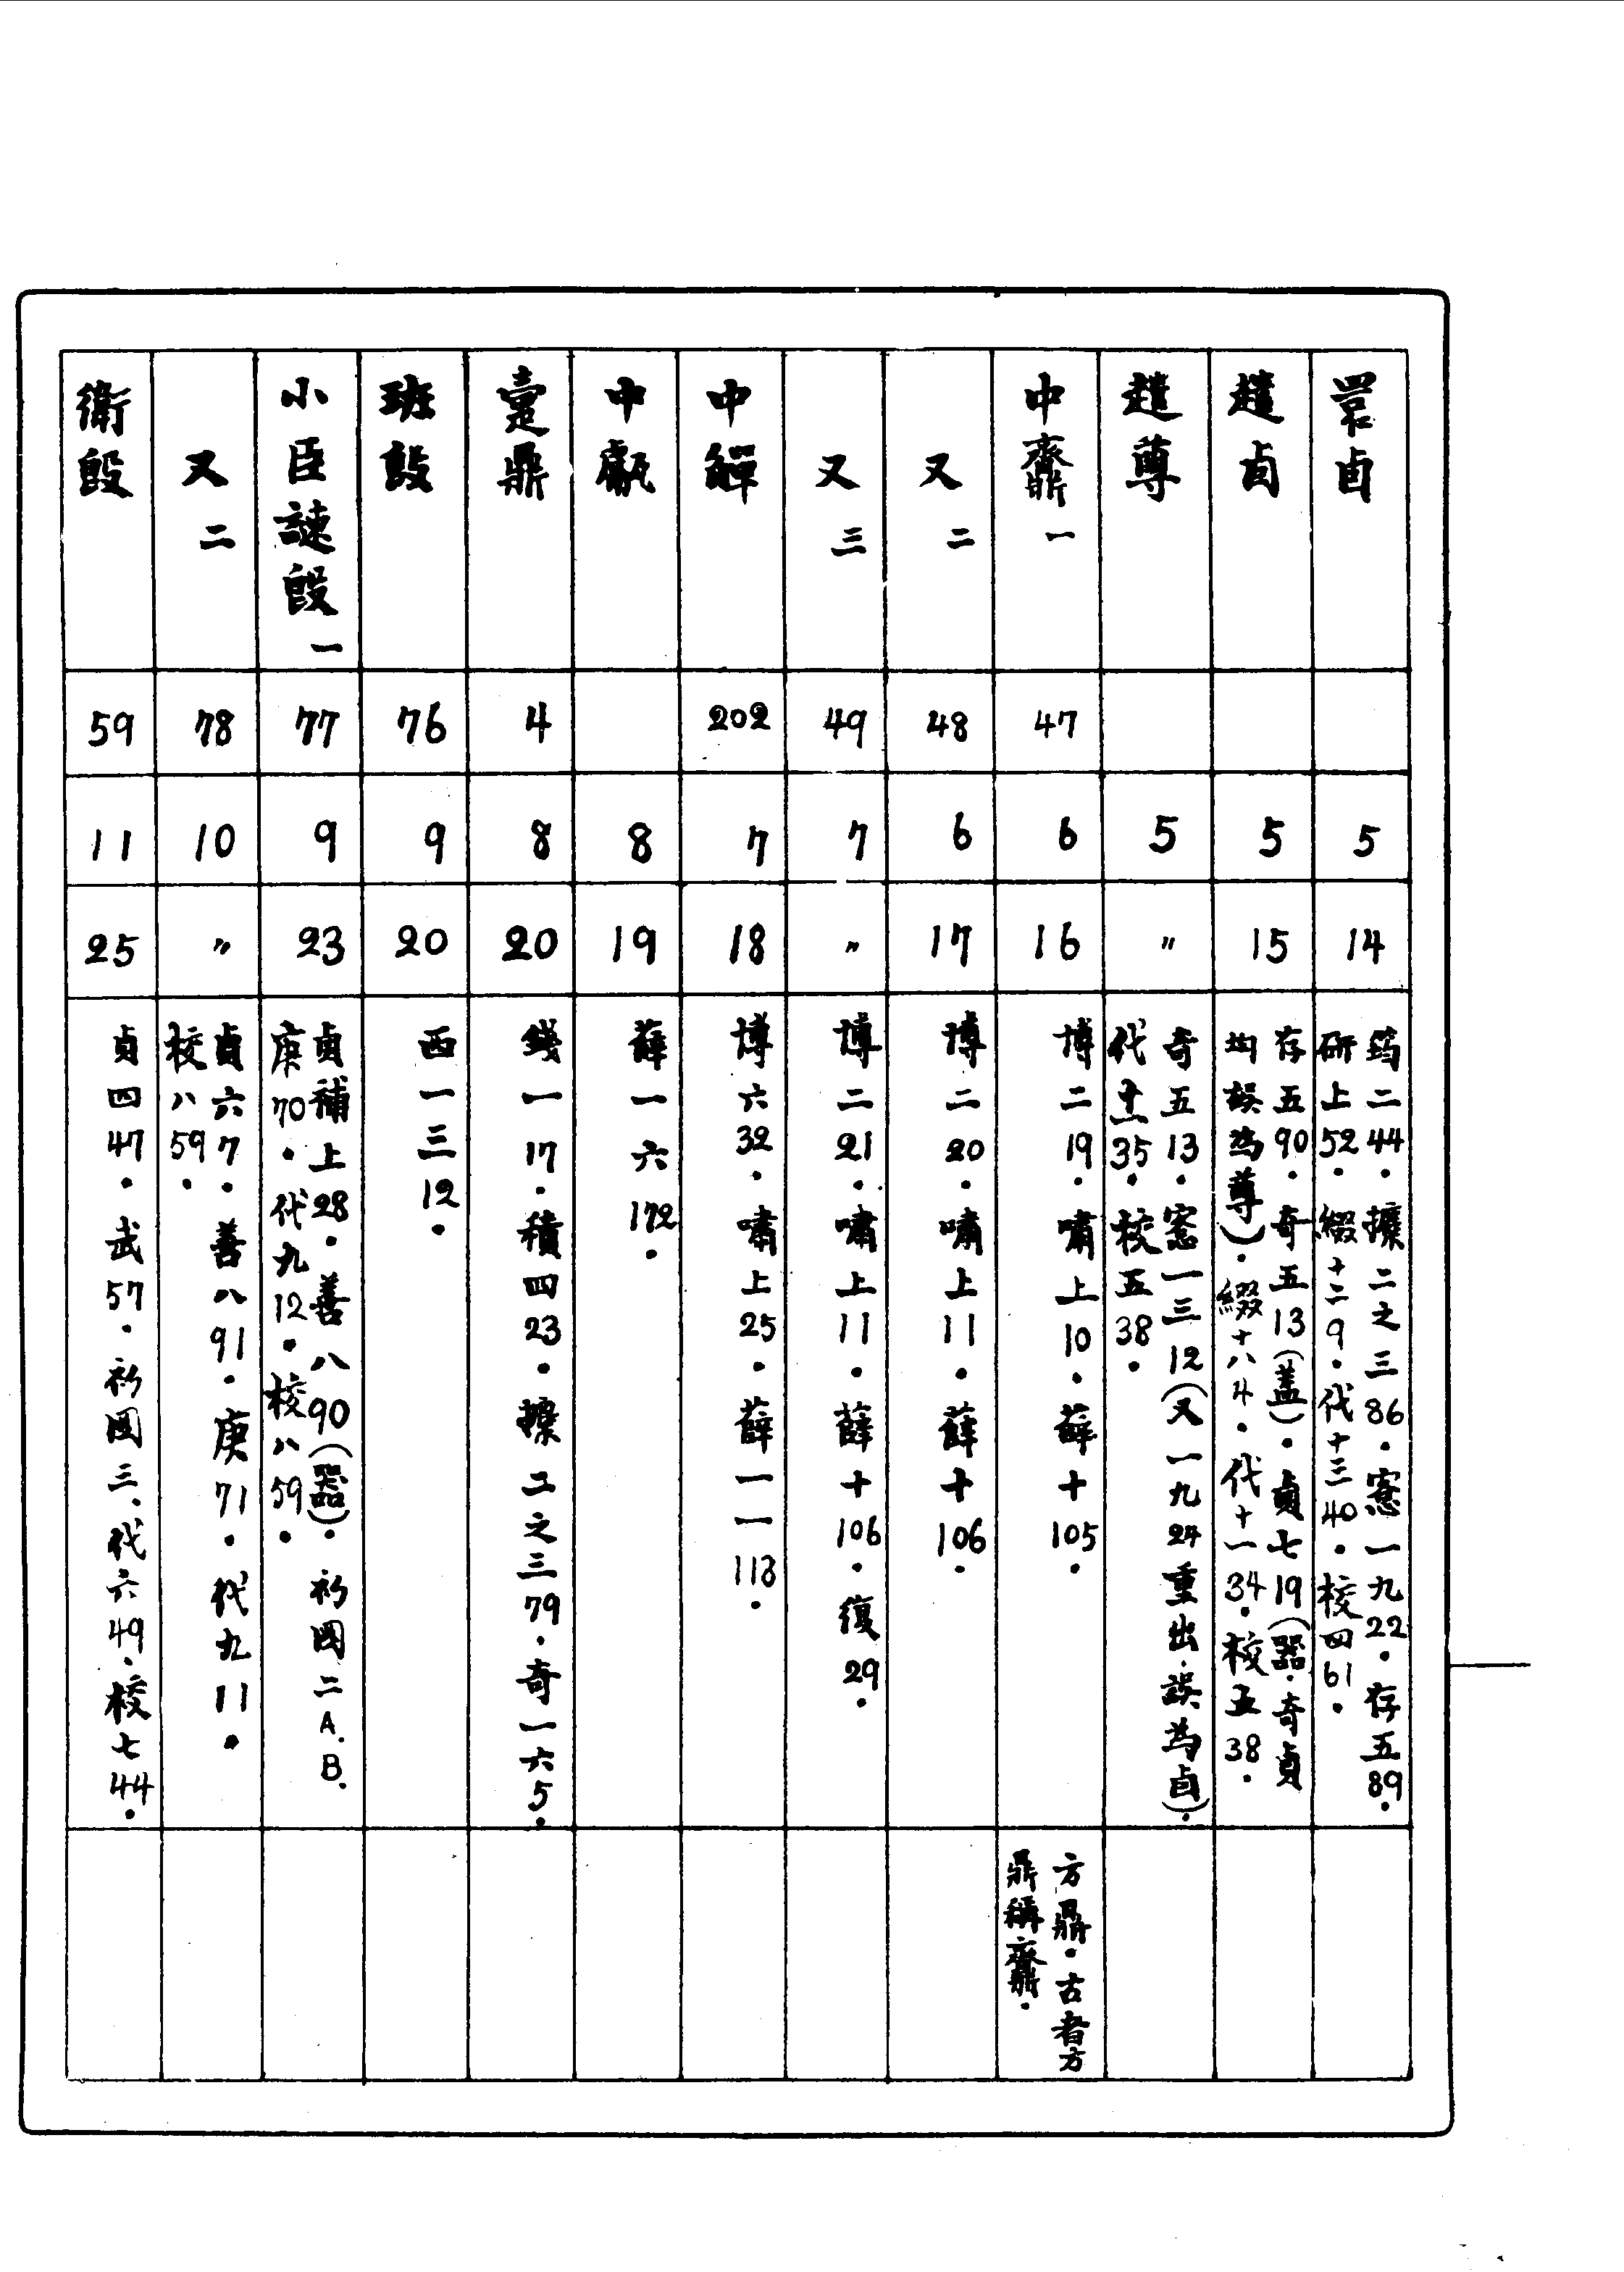 睘卣
5
14
筠二44．攈二之三86．窓一九22．存五89．
研上52．綴十二9．代十三40．校四61．
趞卣
5
15
存五90．奇五13(盖)．貞七19(器．奇貞
均誤為尊)．綴十八4．代十一34．校五38．
趞尊
5
〃
奇五13．窓一三12(又一九24重出．誤為卣)．
代十一35．校五38．
中齋鼎一
47
6
16
博二19．嘯上10．薛十105．
方鼎．古者方
鼎稱齋鼎．
又二
48
6
17
博二20．嘯上11．薛十106．
又三
49
7
〃
博二21．嘯上11．薛十106．復29．
中觶
202
7
18
博六32．嘯上25．薛一一113．
中甗
8
19
薛一六172．
疐鼎
4
8
20
錢一17．積四23．攈二之三79．奇一六5．
班𣪘
76
9
20
西一三12．
小臣謎𣪘一
77
9
23
貞補上28．善八90(器)．衫圖二A.B.
庚70．代九12．校八59．
又二
78
10
〃
貞六7．善八91．庚71．代九11．
校八59．
衛𣪘
59
11
25
貞四47．武57．衫圖三、代六49．校七44．